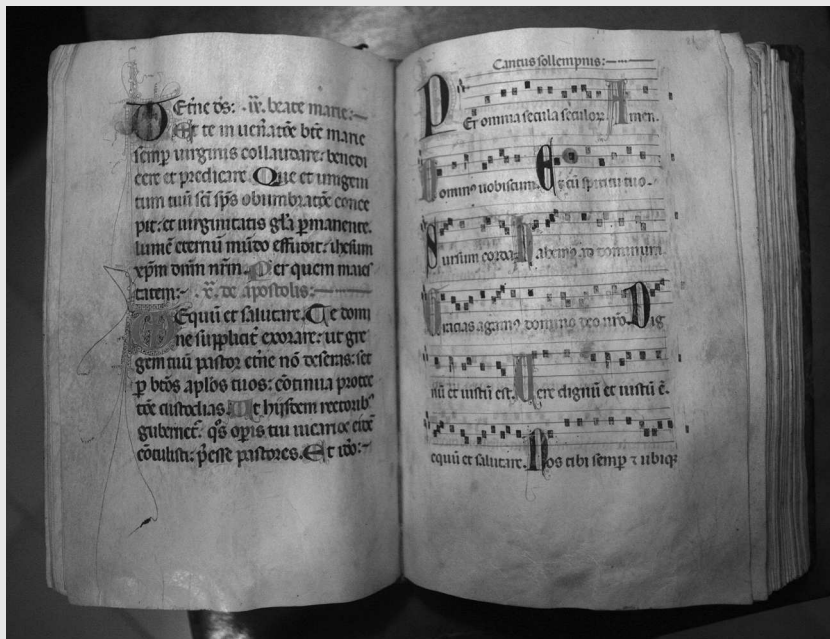 Et̄ne d̄s: . ℣. beate marie:
Et te in uen̄atōe btē marie
semꝑ uirginis collaudare: benedi
cere et predicare. Que et unigeni
tum tuū sc̄i sp̄s obumbratōe conce
pit: et uirginitatis gl̄a ꝑmanente.
lumē eternū mūdo effudit: ihesum
xp̄m dn̄m nr̄m. Per quem maies
tatem: ℣. de apostolis:
Equū et salutare. Te domi
ne suppliciť exorare: ut gre
gem tuū pastor et̄ne nō deseras: set
ꝑ btōs apl̄os tuos: cōtinua protec
tōe custodias. Ut hijsdem rectoribꝰ
gubernet̃. q̄s oꝑis tui uicarios eidē
cōtulisti: p̄esse pastores. Et iō:
Cantus sollempnis:
Per omnia secula seculoꝝ. Amen.
Dominꝰ uobiscum. Et cū spiritu tuo.
Sursum corda. Habemꝰ ad dominum
Gracias agamꝰ domino deo nr̄o. Dig
nū et iustū est. Uere dignū et iustū ē.
equū et salutare. Nos tibi semꝑ ⁊ ubiqꝫ